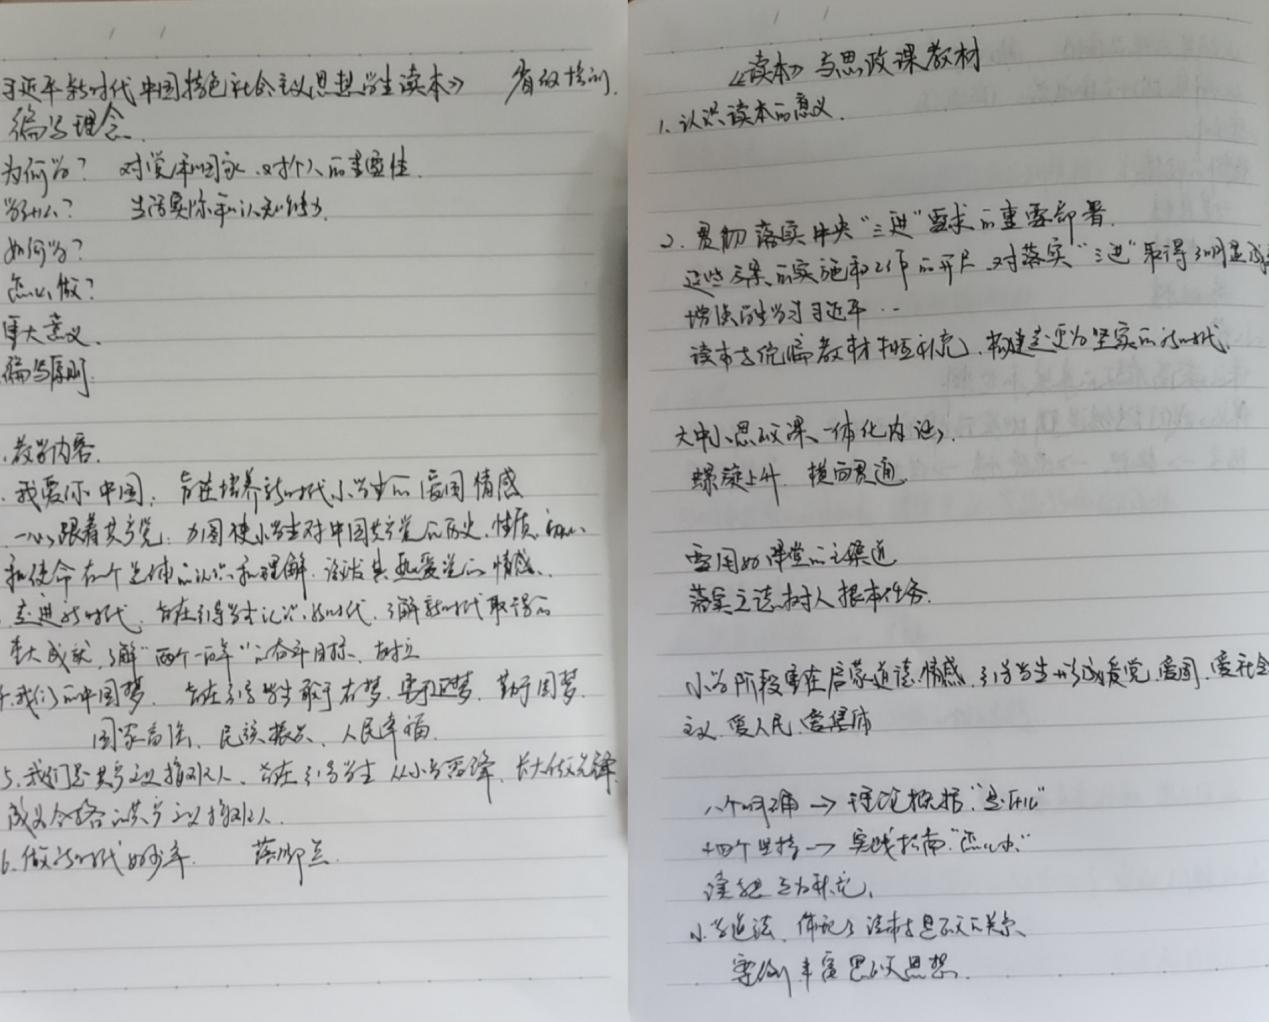 习近平新时代中国特色社会主义思想学生读本》 省级培训.
编写理念.
为何学? 对党和国家、对个人的重要性.
学什么? 生活实际和认知能力.
如何学?
怎么做?
重大意义.
编写原则.
.教学内容.
.我爱你中国, 旨在培养新时代小学生的爱国情感
一心跟着共产党: 力图使小学生对中国共产党的历史、性质、初心
和使命有一个总体的认识和理解.激发其热爱党的情感.
.走进新时代, 旨在引导学生认识新时代.了解新时代取得的
重大成就,了解"两个一百年"的奋斗目标.树立
.我们的中国梦 旨在引导学生敢于有梦、勇于追梦、勤于圆梦.
国家富强、民族振兴、人民幸福.
5.我们是共产主义接班人、旨在引导学生从小学先锋、长大做先锋
成为合格的共产主义接班人.
6.做新时代好少年. 落脚点.
《读本》与思政课教材
1.认识读本的意义.
2.贯彻落实中央"三进"要求的重要部署.
这些方案的实施和工作的开展 对落实"三进"取得了明显成
学习习近平…
读本与统编教材相互补充、构建更为坚实的新时代.
大中小思政课、一体化
螺旋上升 横向贯通
要用好课堂的主渠道
落实立德树人根本任务.
小学阶段重在启蒙道德情感.引导学生形成爱党、爱国、爱社会
主义、爱人民、爱集体
八个明确 → 理论概括."是什么"
十四个坚持 → 实践指南"怎么办"
互为补充,
小学道法、体现了读本与思政的关系、
案例丰富思政思想.